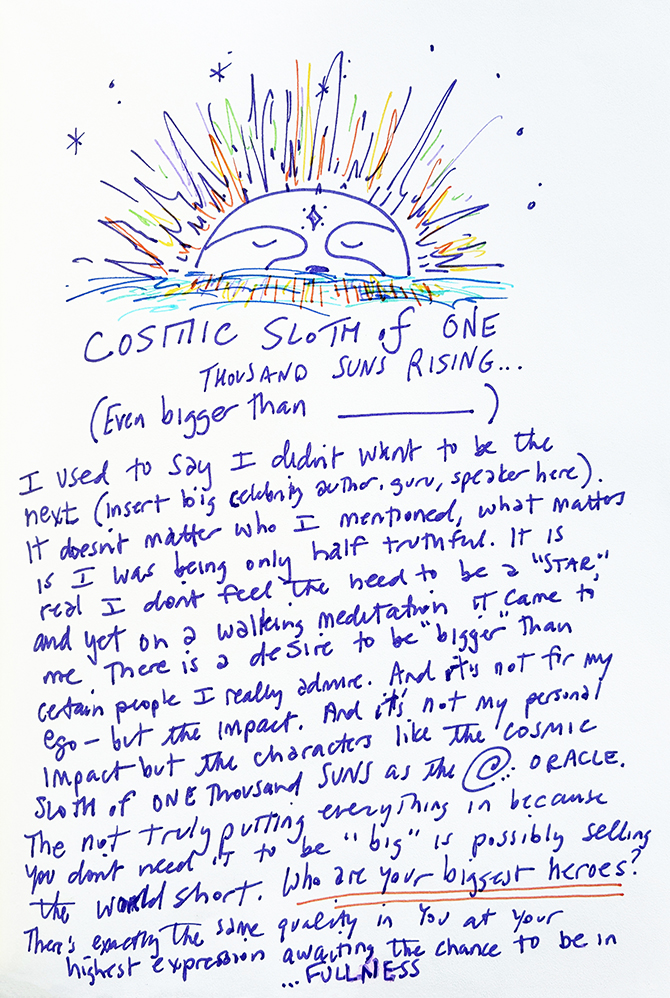 COSMIC SLOTH of ONE
THOUSAND SUNS RISING...
(Even bigger than ________)
I used to say I didn't want to be the
next (insert big celebrity author, guru, speaker here).
It doesn't matter who I mentioned, what matters
is I was being only half truthful. It is
real I don't feel the need to be a "STAR"
and yet on a walking meditation it came to
me There is a desire to be "bigger" than
certain people I really admire. And it's not for my
ego - but the impact. And it's not my personal
impact but the characters like the COSMIC
SLOTH of ONE Thousand SUNS as the @... ORACLE.
The not truly putting everything in because
you don't need it to be "big" is possibly selling
the world short. Who are your biggest heroes?
There's exactly the same quality in You at your
highest expression awaiting the chance to be in
...FULLNESS